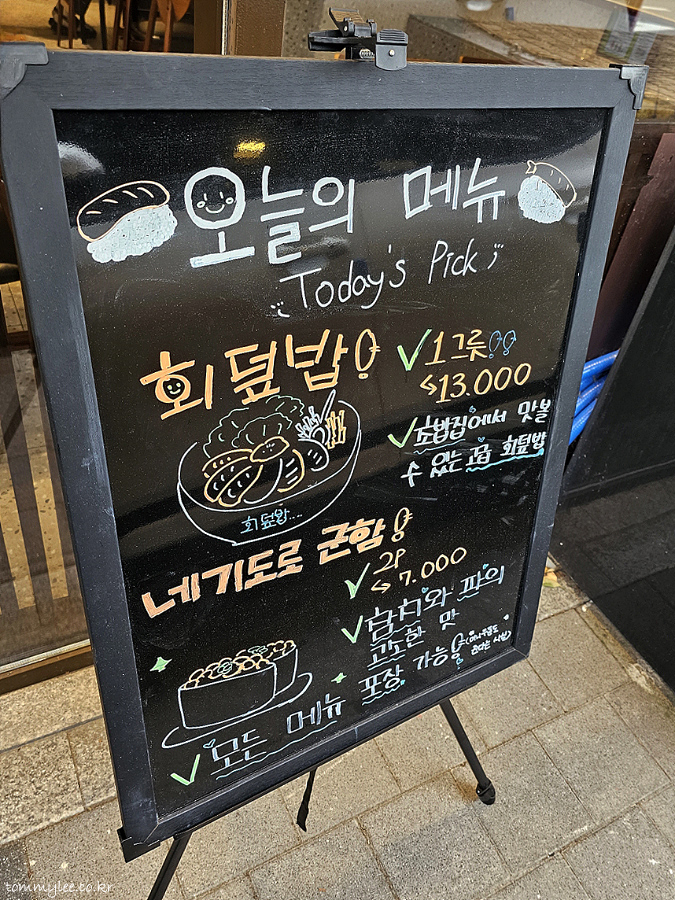 오늘의 메뉴
Today's Pick
회덮밥
1그릇
13.000
초밥집에서 맛볼
수 있는 고급 회덮밥
회덮밥....
네기도로 군함
2P
7.000
참치와 파의
고소한 맛
모든 메뉴 포장 가능
tommylee.co.kr